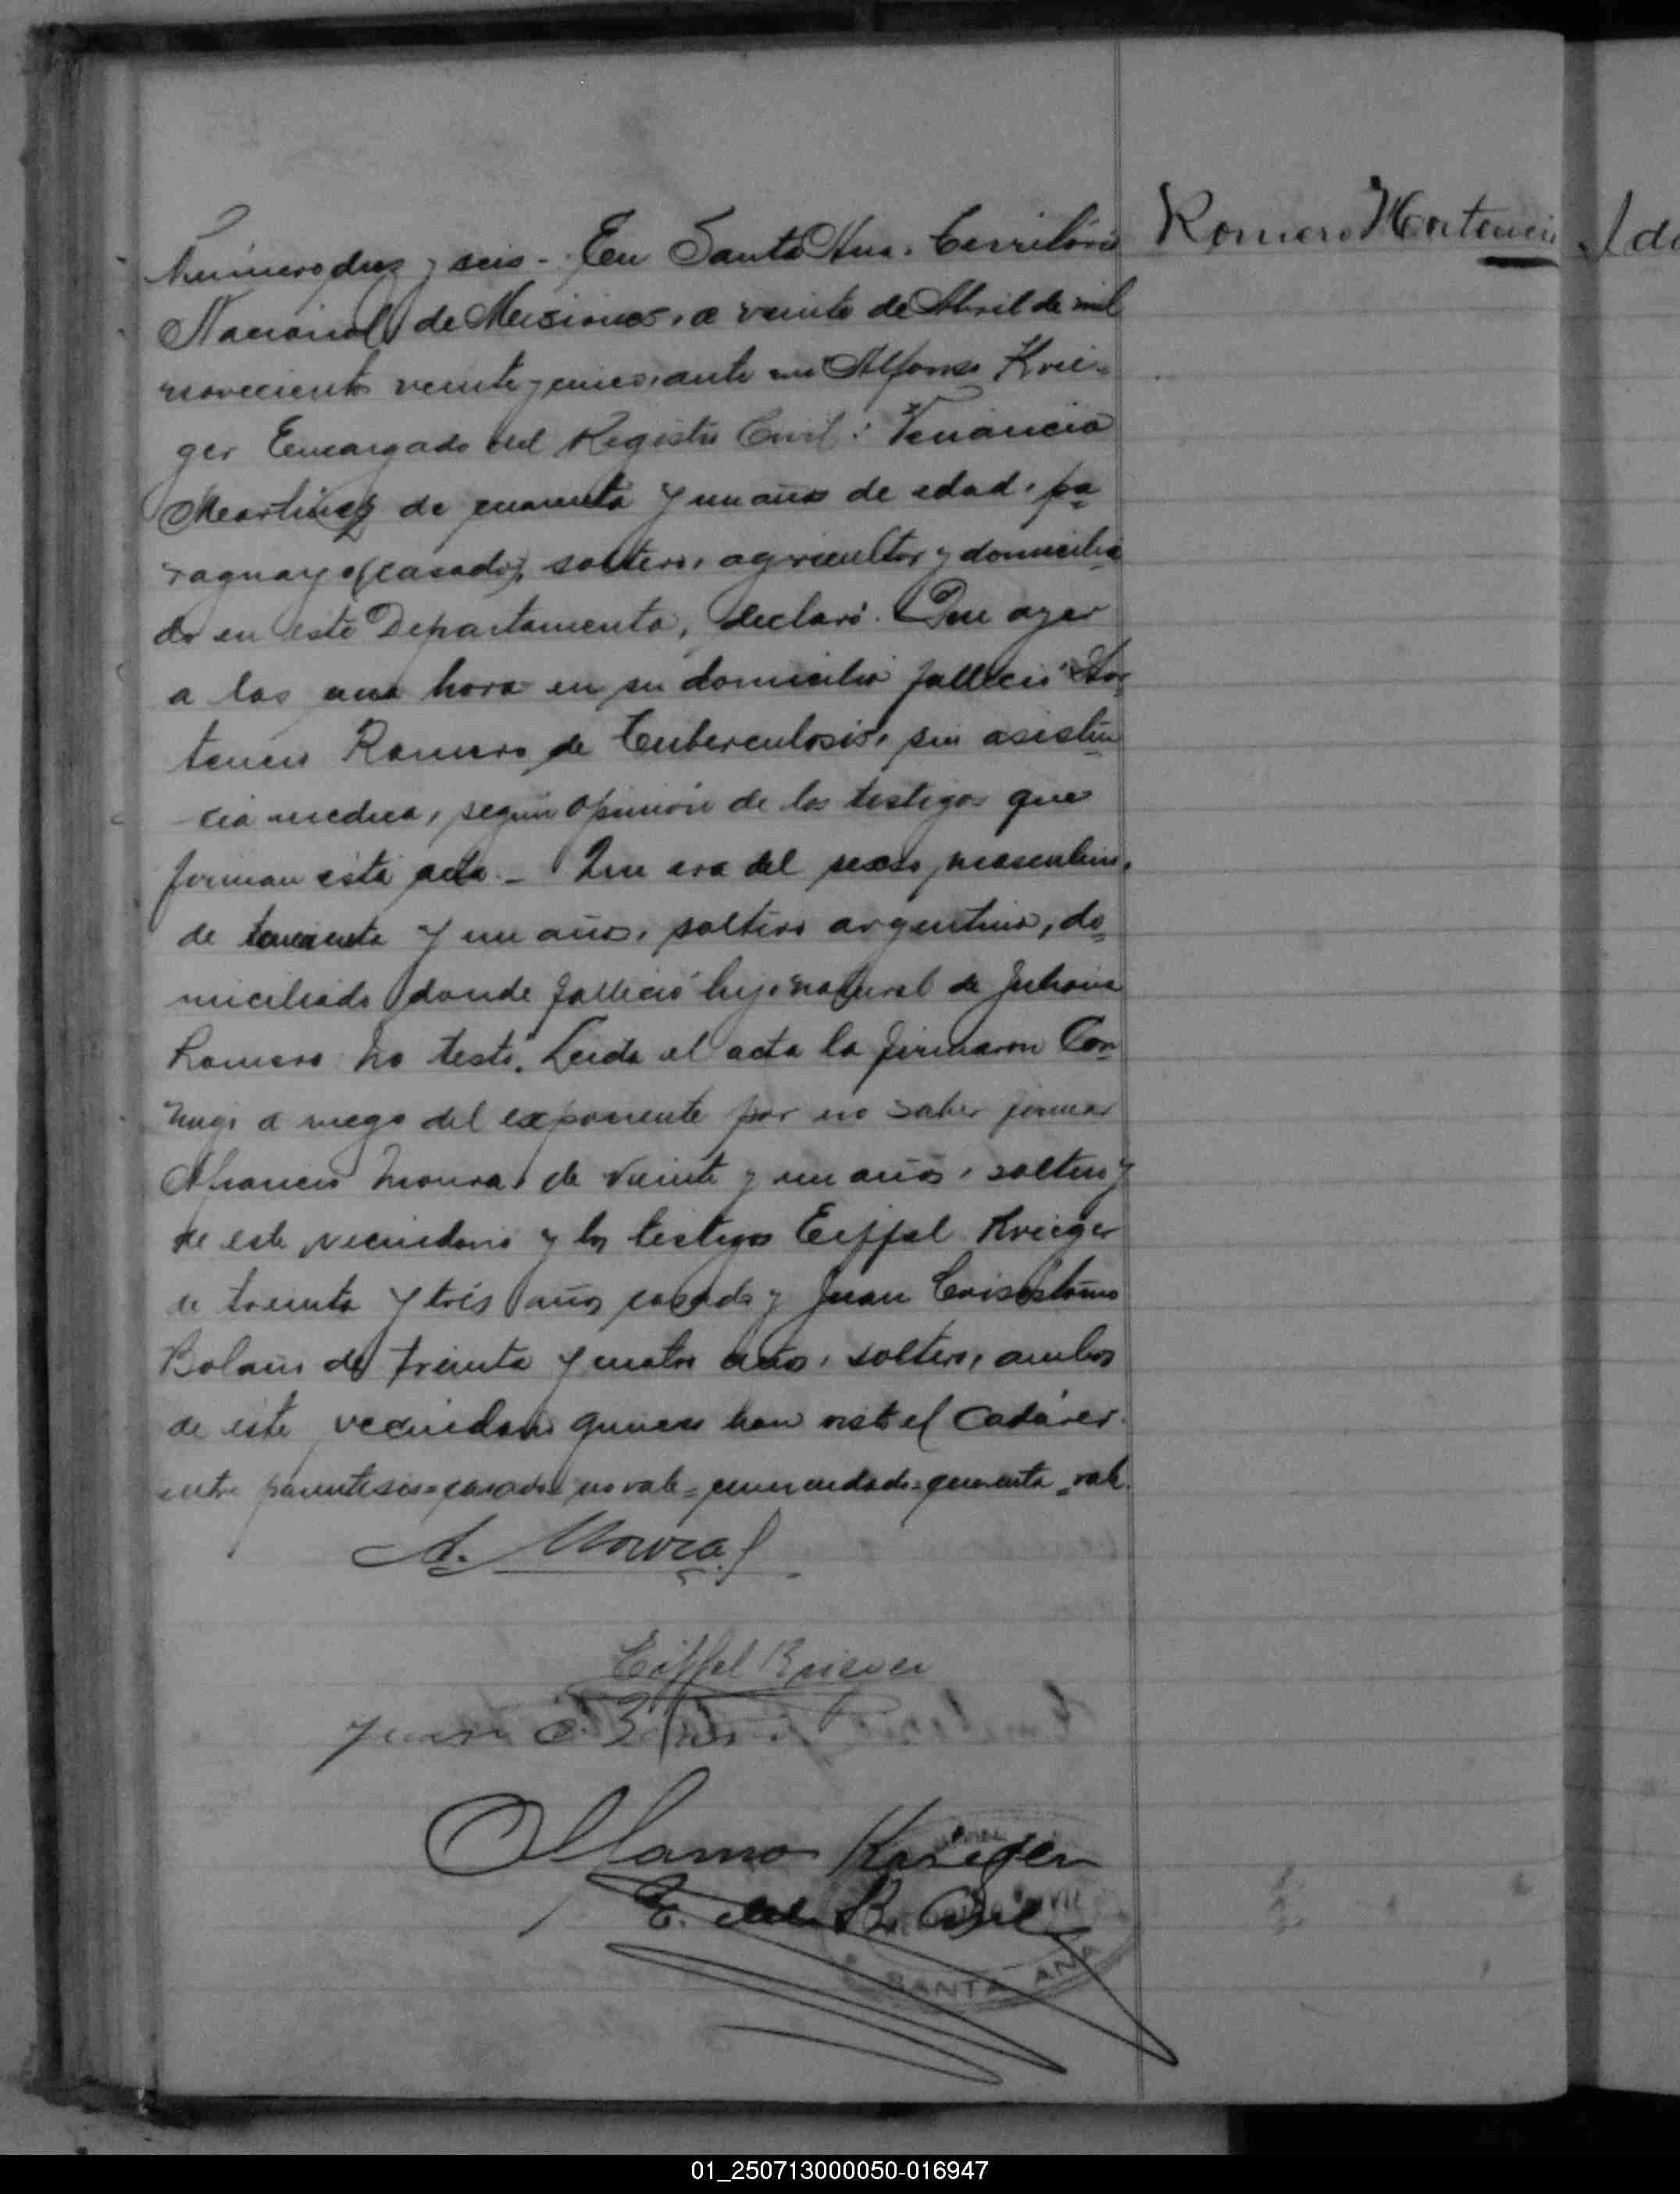 Romero Hortencio
Número diez y seis. En Santa Ana, Territorio
Nacional de Misiones, a veinte de Abril de mil
novecientos veinte y cinco, ante mi Alfonso Krie-
ger Encargado del Registro Civil: Venancio
Martinez de cuarenta y un años de edad, pa-
raguayo (casado), soltero, agricultor y domicilia-
do en este Departamento, declaró: Que ayer
a las una hora en su domicilio falleció Hor-
tencio Romero de Tuberculosis, sin asisten-
cia medica, según opinión de los testigos que
firman esta acta. Que era del sexo masculino,
de cuarenta y un años, soltero argentino, do-
miciliado donde falleció hijo natural de Juliana
Romero No testó. Leida el acta la firmaron Con-
migo a ruego del exponente por no saber firmar
Moura, de veinte y un años, soltero y
de este vecindario y los testigos Eiffel Krieger
de treinta y trés años casado y Juan Crisóstomo
de treinta y cuatro años, soltero, ambos
de este vecindario quienes han visto el Cadáver.
entre parentesis=casado no vale=enmendado=cuarenta=vale.
A. Moura
Eiffel Krieger
Juan C.
Krieger
E. del R. Civil
SANTA ANA
01_250713000050-016947